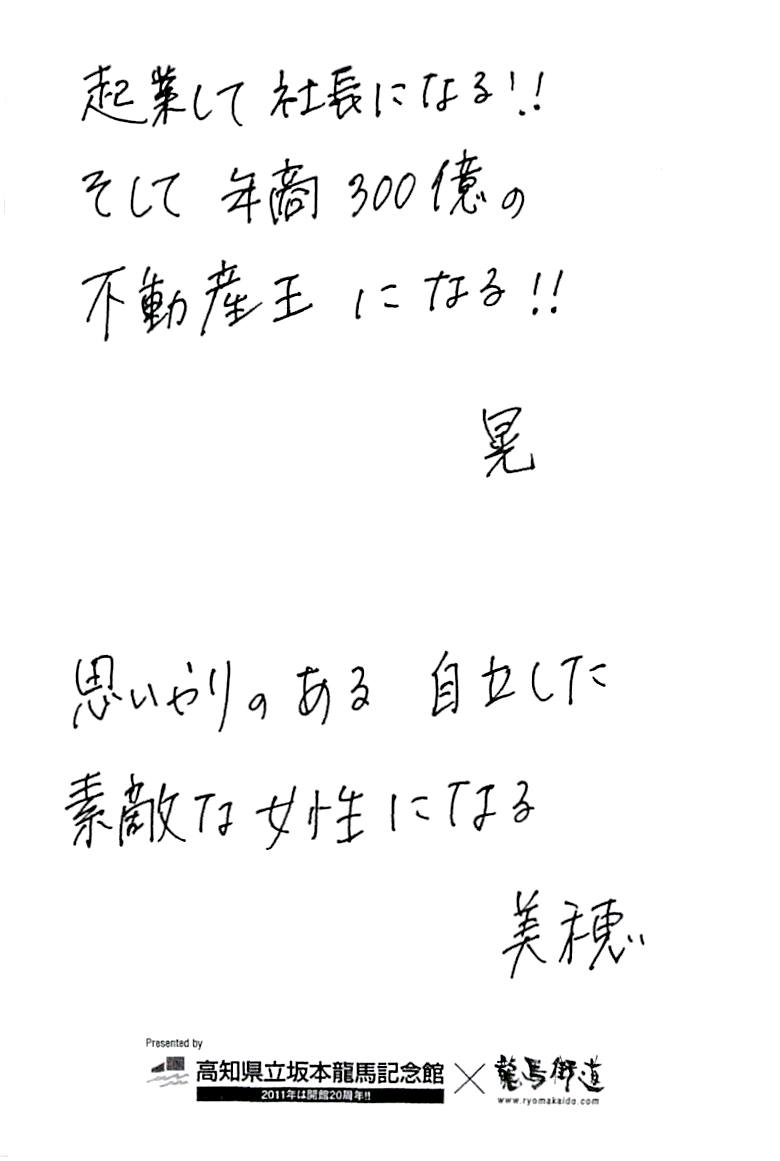 起業して 社長になる!!
そして 年商 300億の
不動産王 になる!!
晃
思いやりの ある 自立した
素敵な 女性になる
美穂
Presented by
高知県立坂本龍馬記念館 × 龍馬街道
2011年は開館20周年!!
www.ryomakaido.com